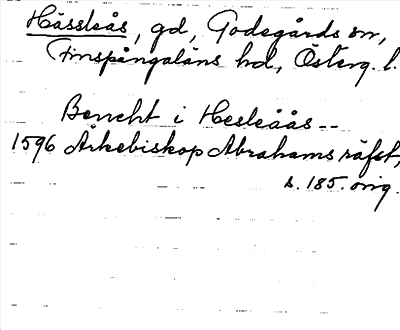 Hässleås, gd, Godegårds sn,
Finspångaläns hd., Österg. l.
Bencht i Hesleåås--
1596 Ärkebiskop Abrahams räfst,
s. 185. orig.